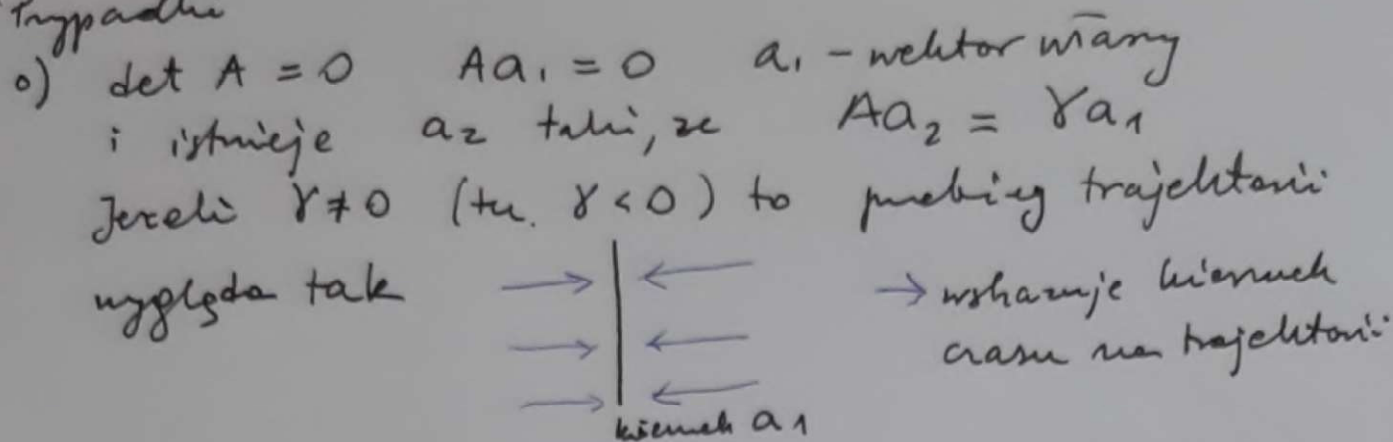 Przypadki
0) det A = 0 Aa₁ = 0 a₁ - wektor własny
i istnieje a₂ taki, że Aa₂ = γa₁
Jeżeli γ ≠ 0 (tu. γ < 0) to przebieg trajektorii
wygląda tak → wskazuje kierunek
czasu na trajektorii
kierunek a₁